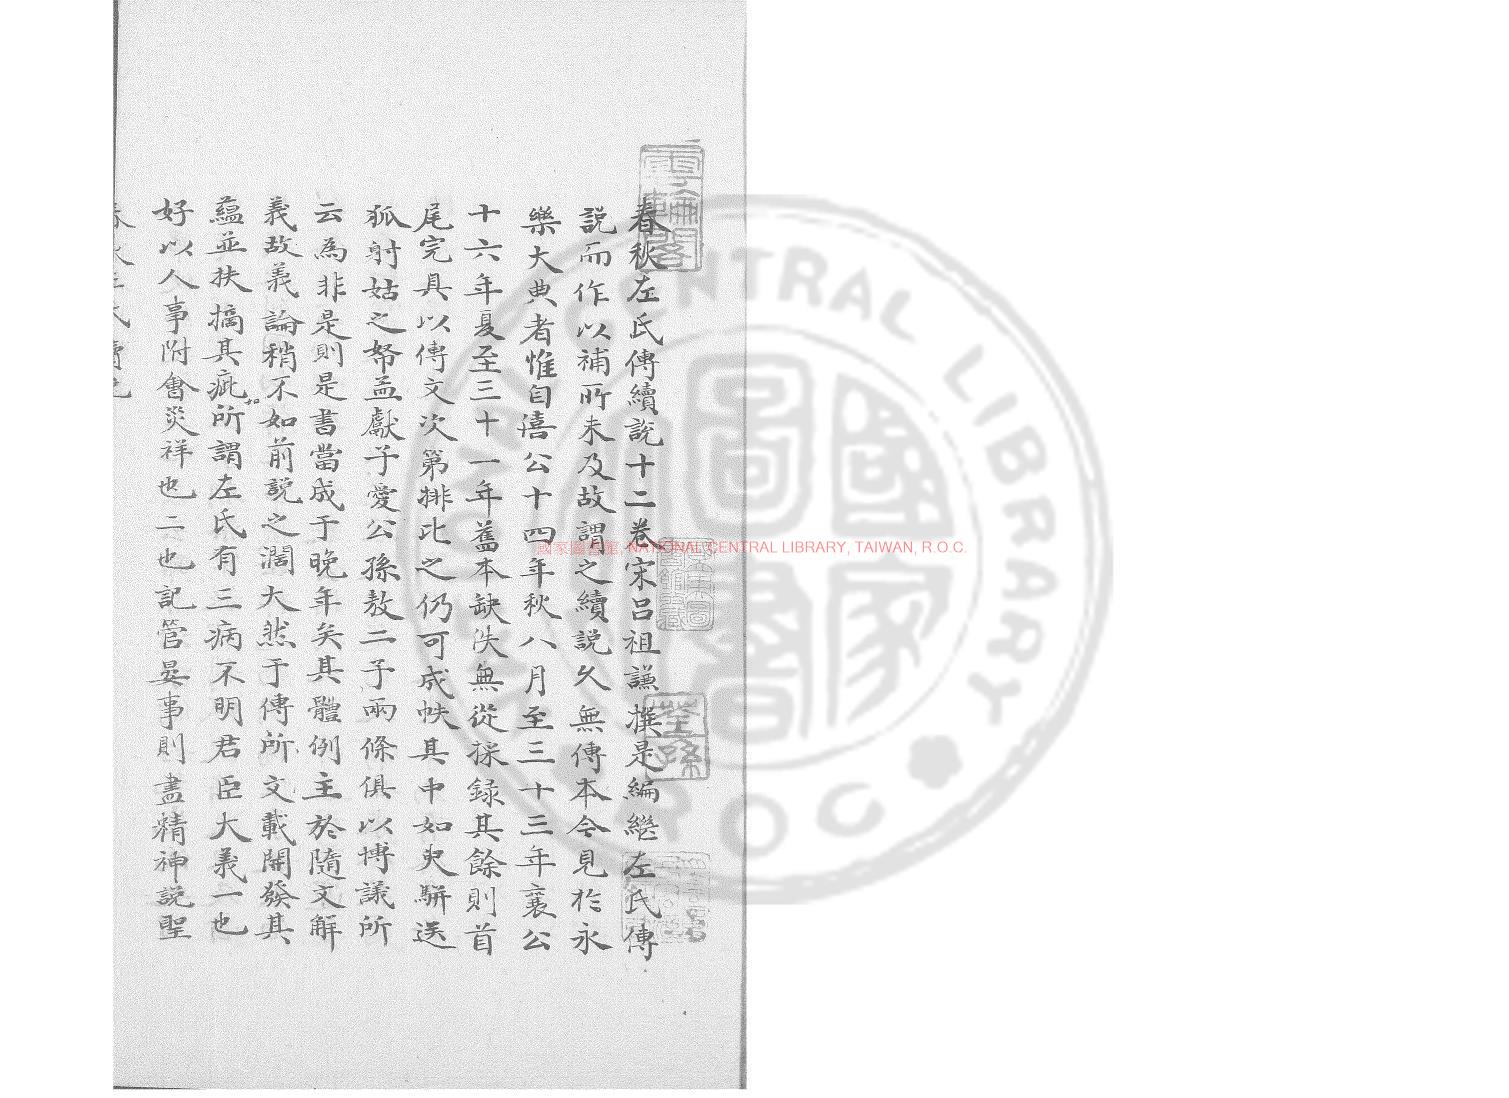 春秋左氏傳續說十二卷宋呂祖謙撰是編繼左氏傳
説而作以補所未及故謂之續説久無傳本今見於永
樂大典者惟自僖公十四年秋八月至三十三年襄公
十六年夏至三十一年舊本缺泆無從採錄其餘則首
尾完具以傳文次第排比之仍可成帙其中如臾駢送
狐射姑之帑孟獻子愛公孫敖二子兩條俱以博議所
云為非是則是書當成于晚年矣其體例主於隨文解
義故義論稍不如前説之濶大然于傳所文載開發其
蘊並抉摘其疵所謂左氏有三病不明君臣大義一也
好以人事附會災祥也二也記管晏事則盡精神説聖
雲輪閣
荃孫
國家圖書館, NATIONAL CENTRAL LIBRARY, TAIWAN, R.O.C.
NATIONAL CENTRAL LIBRARY
R.O.C.